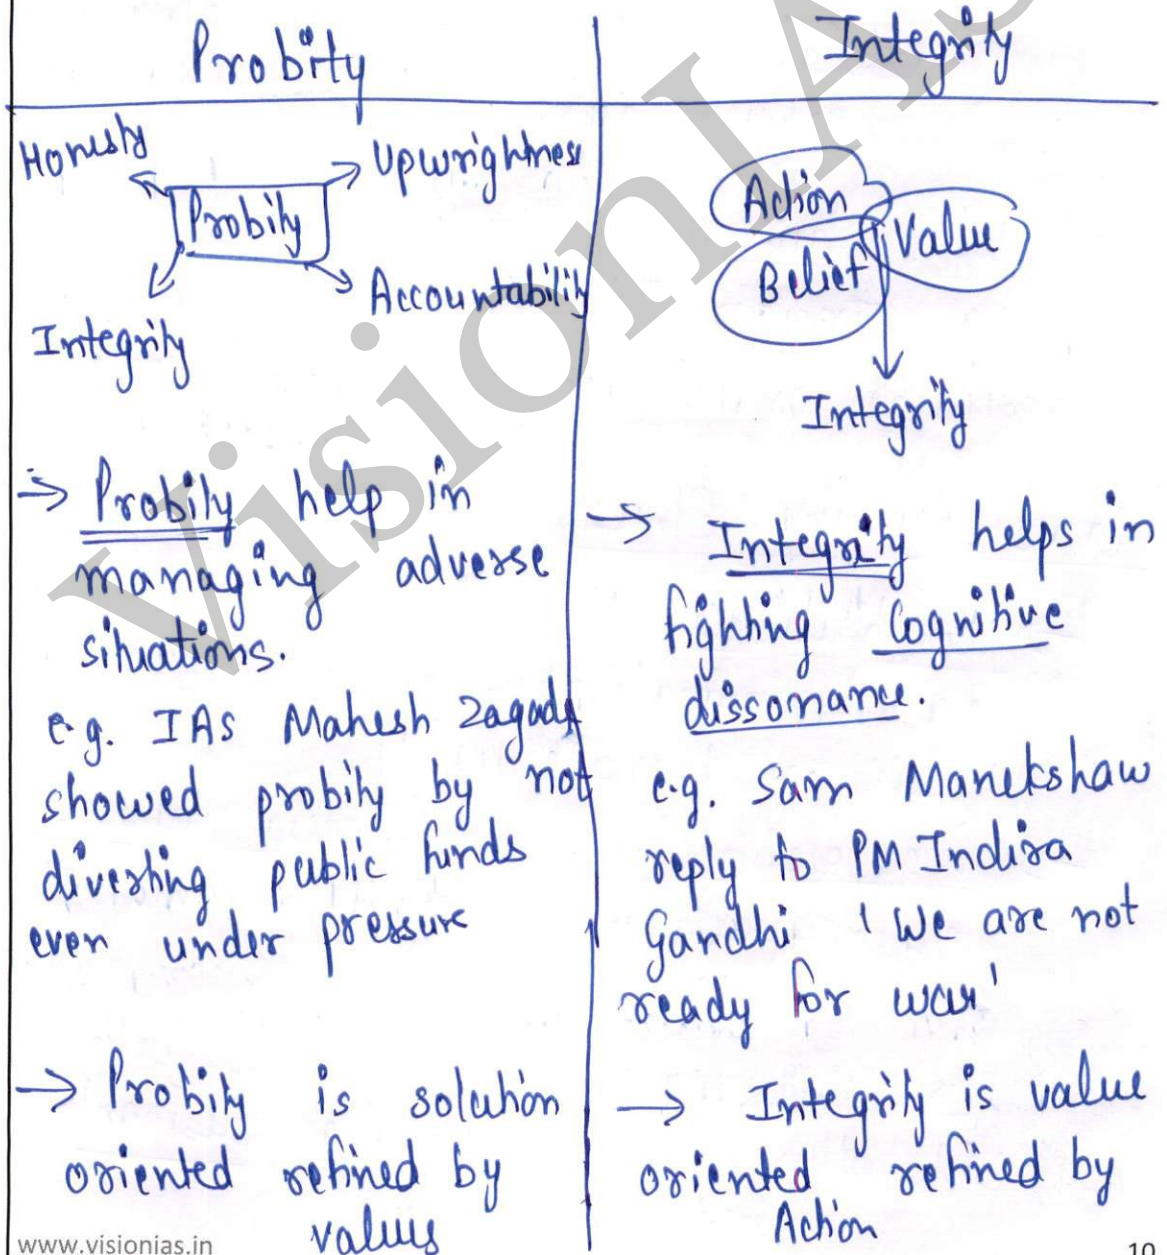 Probity
Honesty
Upwrightness
Probity
Integrity
Accountability
→ Probity help in
managing adverse
situations.
e.g. IAS Mahesh Zagade
showed probity by not
diverting public funds
even under pressure
→ Probity is solution
oriented refined by
values
Integrity
Action
Value
Belief
Integrity
→ Integrity helps in
fighting Cognitive
dissonance.
e.g. Sam Manekshaw
reply to PM Indira
Gandhi 'We are not
ready for war'
→ Integrity is value
oriented refined by
Action
VisionIAS
www.visionias.in
10